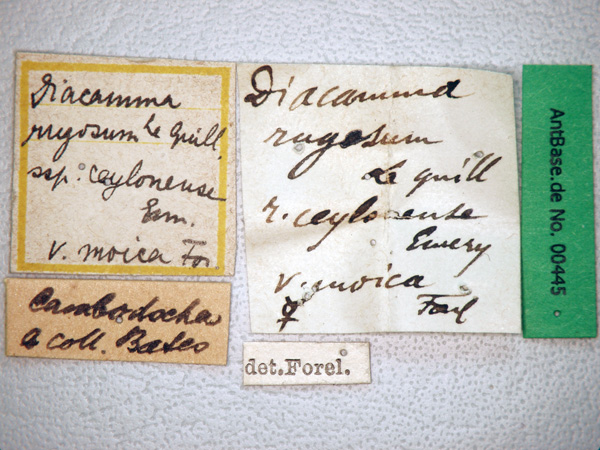 Diacamma
rugosum Le Guill.
ssp. ceylonense
Em.
v. moica For.
Cambodscha
a coll. Bates
Diacamma
rugosum
Le guill
r. ceylonense
Emery
v. moica
☿ Forel
det. Forel.
AntBase.de No. 00445